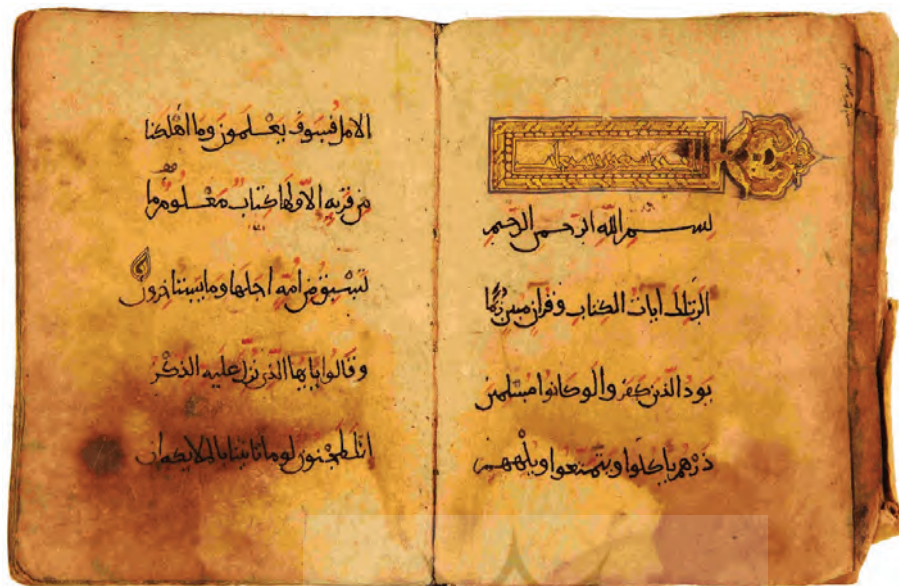 بسم الله الرحمن الرحيم
الر تلك ايات الكتاب وقرآن مبين ربما
يود الذين كفروا لو كانوا مسلمين
ذرهم ياكلوا ويتمتعوا ويلههم
الامل فسوف يعلمون وما أهلكنا
من قرية الا ولها كتاب معلوم ما
تسبق من امة اجلها وما يستاخرون
وقالوا يايها الذي نزل عليه الذكر
انك لمجنون لو ما تاتينا بالملايكة ان